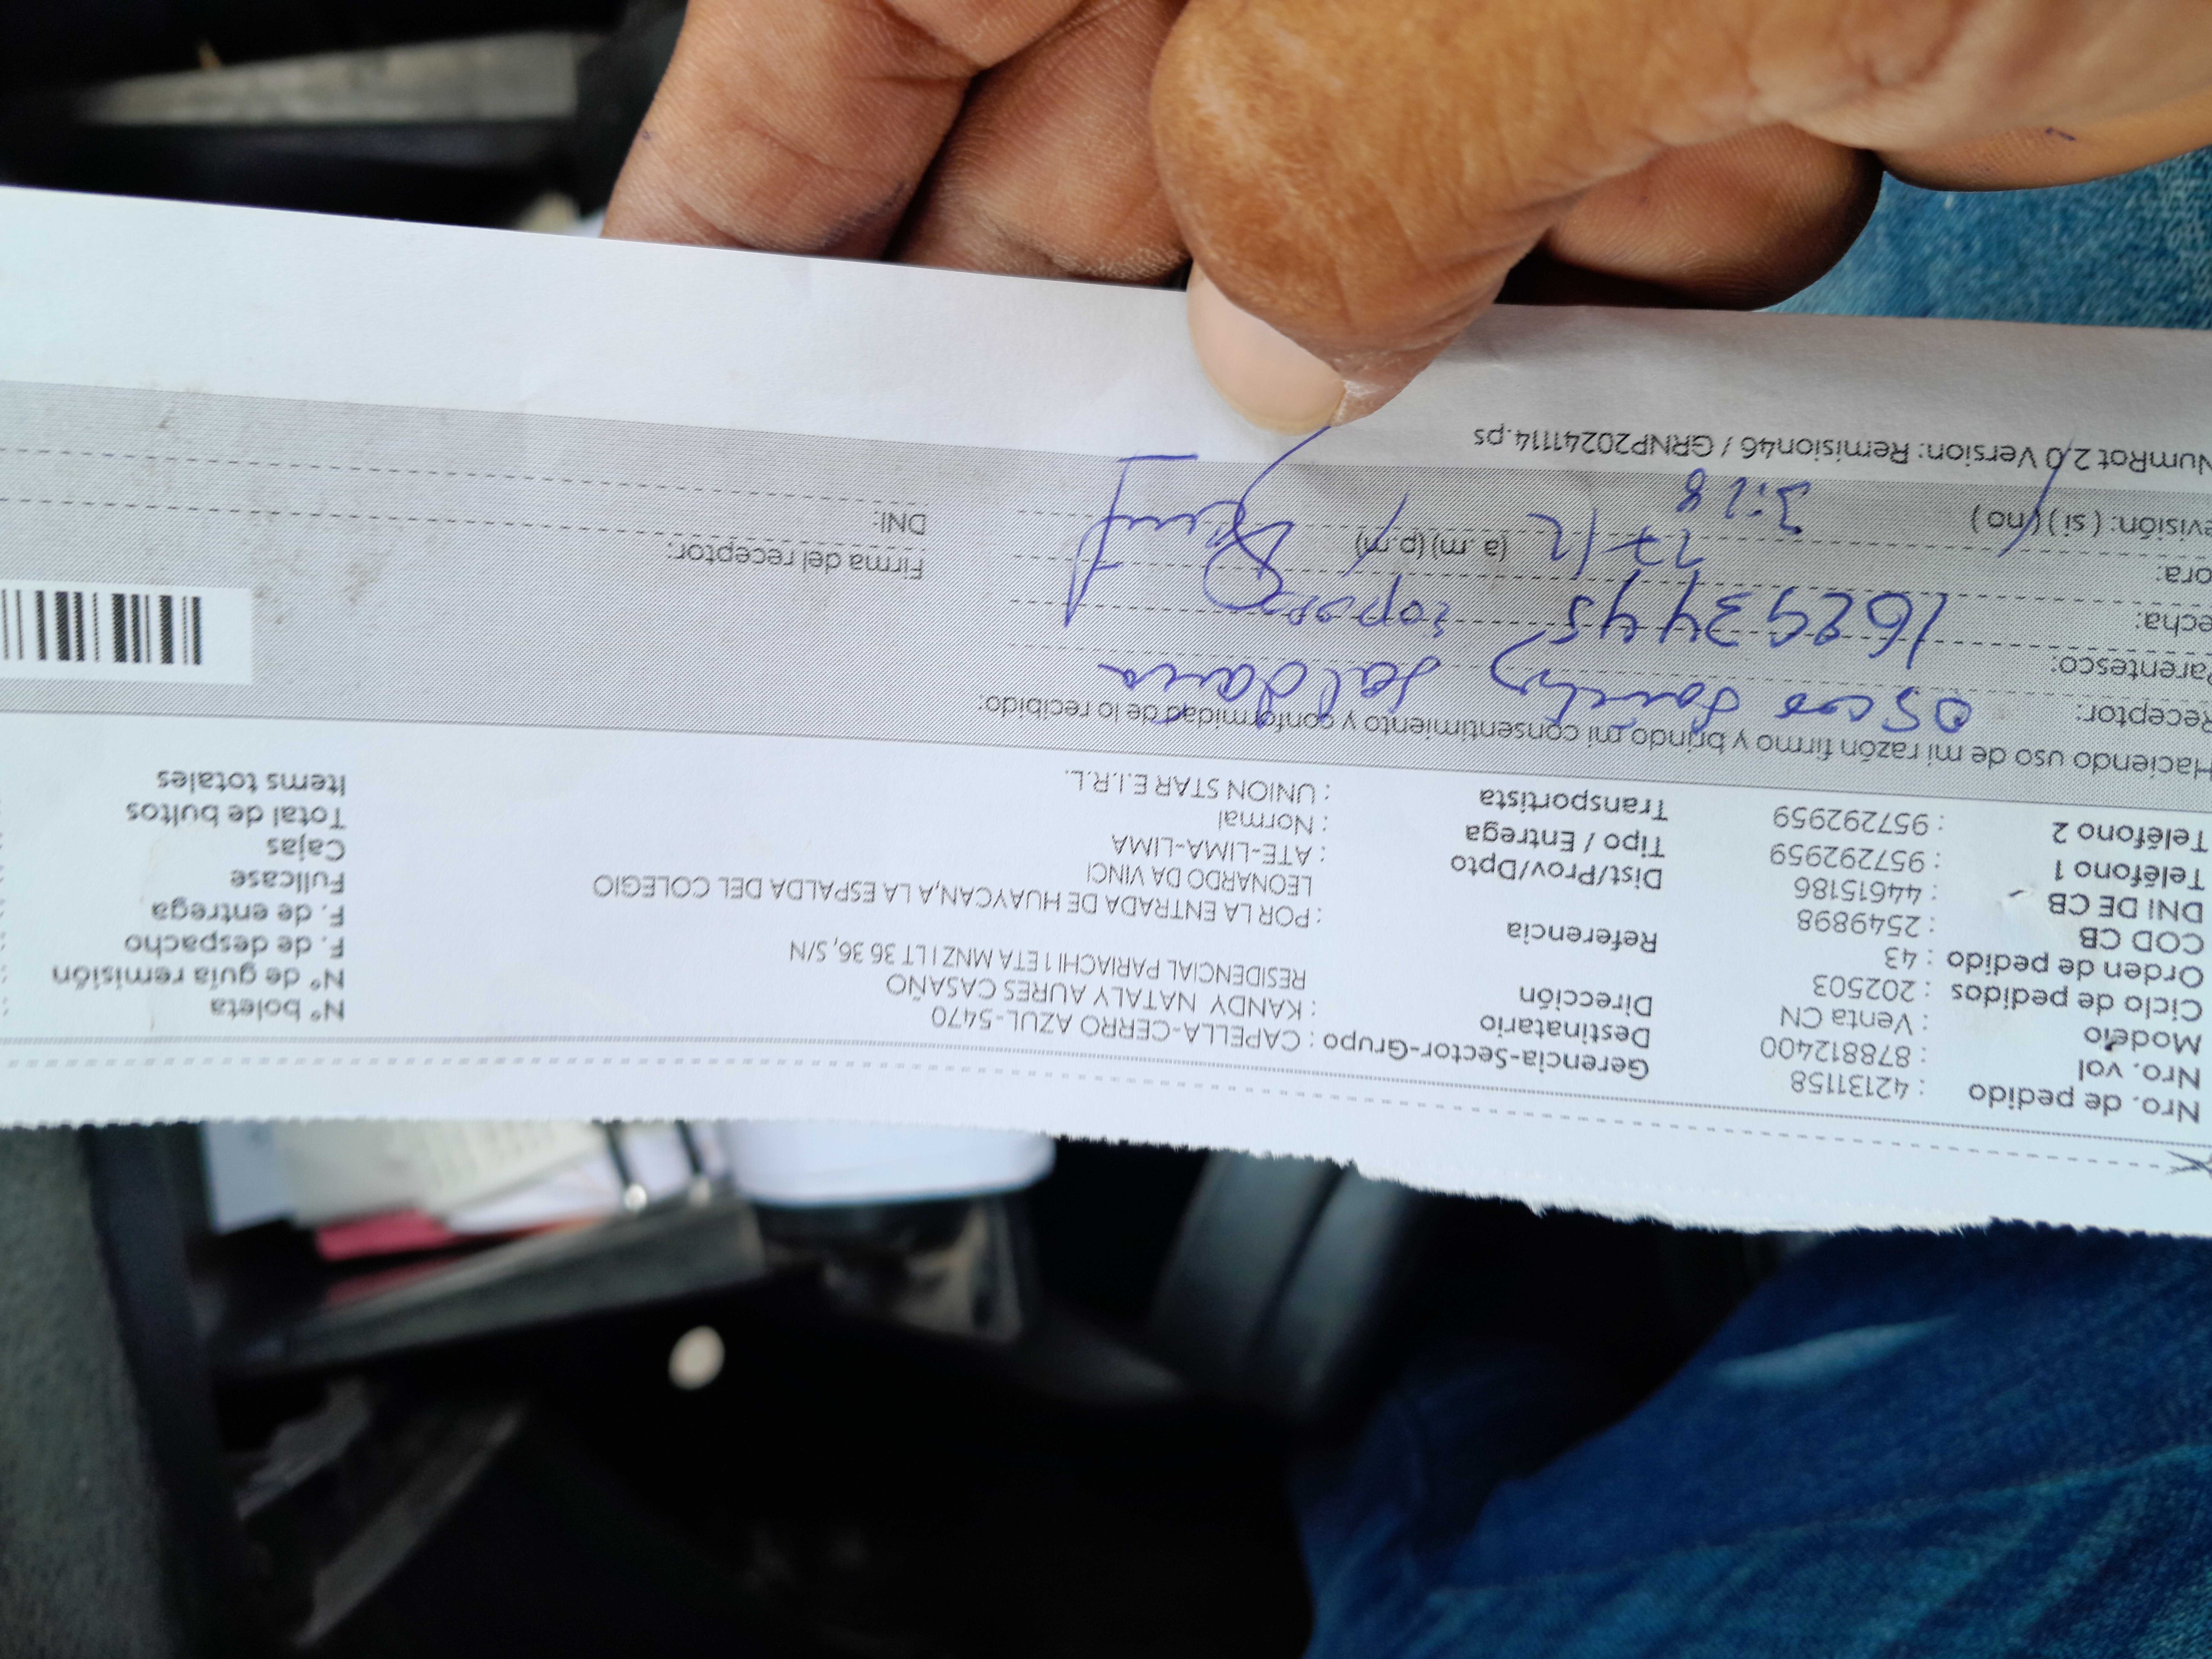 Nro. de pedido : 42131158
Nro. vol : 878812400
Modelo : Venta CN
Ciclo de pedidos : 202503
Orden de pedido : 43
COD CB : 2549898
DNI DE CB : 44615186
Teléfono 1 : 957292959
Teléfono 2 : 957292959
Gerencia-Sector-Grupo : CAPELLA-CERRO AZUL-5470
Destinatario : KANDY NATALY AURES CASAÑO
Dirección RESIDENCIAL PARIACHI 1 ETA MNZ I LT 36 36, S/N
Referencia : POR LA ENTRADA DE HUAYCAN,A LA ESPALDA DEL COLEGIO
LEONARDO DA VINCI
Dist/Prov/Dpto : ATE-LIMA-LIMA
Tipo / Entrega : Normal
Transportista : UNION STAR E.I.R.L.
N° boleta :
N° de guía remisión :
F. de despacho :
F. de entrega :
Fullcase
Cajas
Total de bultos
Items totales
Haciendo uso de mi razón firmo y brindo mi consentimiento y conformidad de lo recibido:
Receptor: Saldaña
Parentesco: 16293445
echa: 17/12
ora: 3:28 (a.m) (p.m)
evisión: ( si ) ( no )
Firma del receptor:
DNI:
NumRot 2.0 Version: Remision46 / GRNP20241114.ps